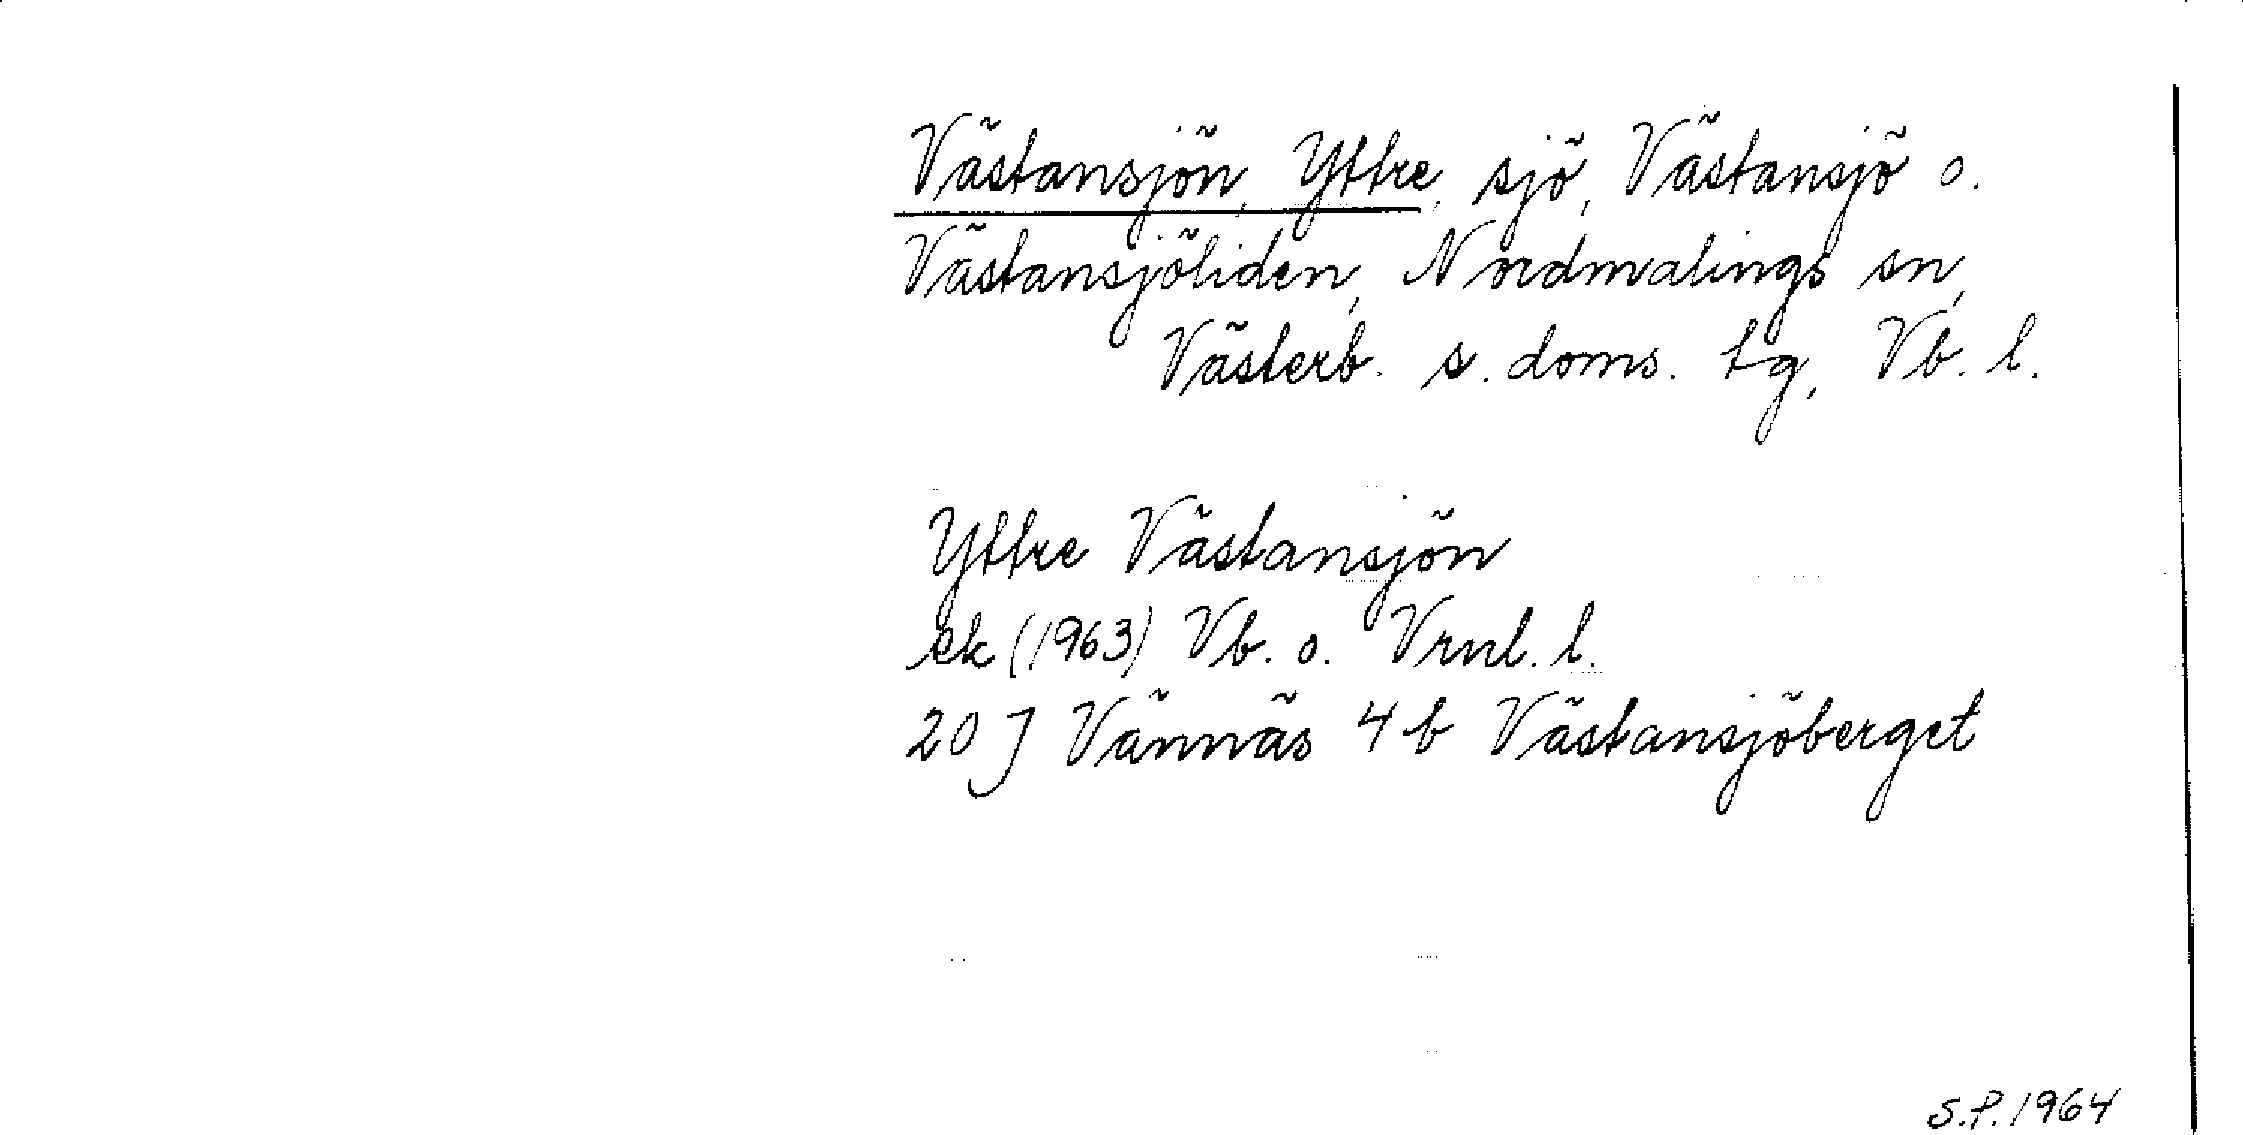 Västansjön, Yttre, sjö, Västansjö o.
Västansjöliden, Nordmalings sn,
Västerb. s. doms. tg, Vb. l.
Yttre Västansjön
ek (1963) Vb. o. Vrnl. l.
20 J Vännäs 4 b Västansjöberget
S.P. 1964